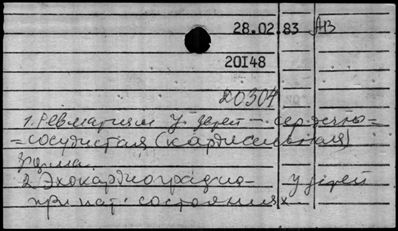 28.02.83 АВ
20I48
20304
1. Ревматизм у детей - сердечно=
=сосудистая (кардиальная)
форма.
2. Эхокардиография у детей
при пат. состояниях